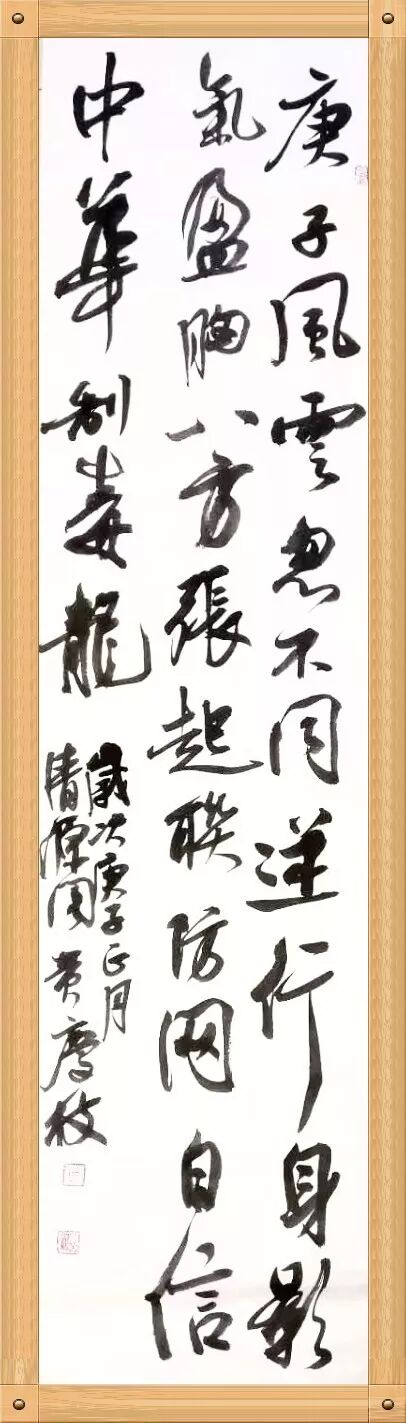 庚子風雲忽不同逆行身影
氣盈胸八方張起聯防网自信
中華制毒龍
歲次庚子正月
清源 黄